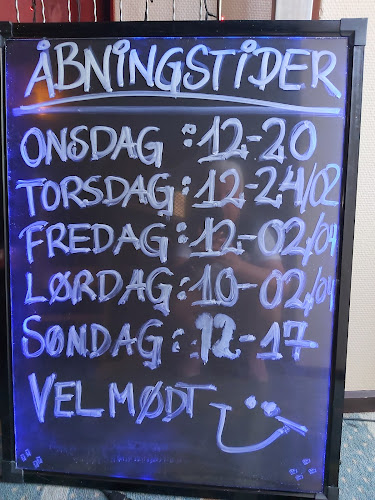 ÅBNINGSTIDER
ONSDAG : 12-20
TORSDAG : 12-24/02
FREDAG : 12-02/04
LØRDAG : 10-02/04
SØNDAG : 12-17
VELMØDT